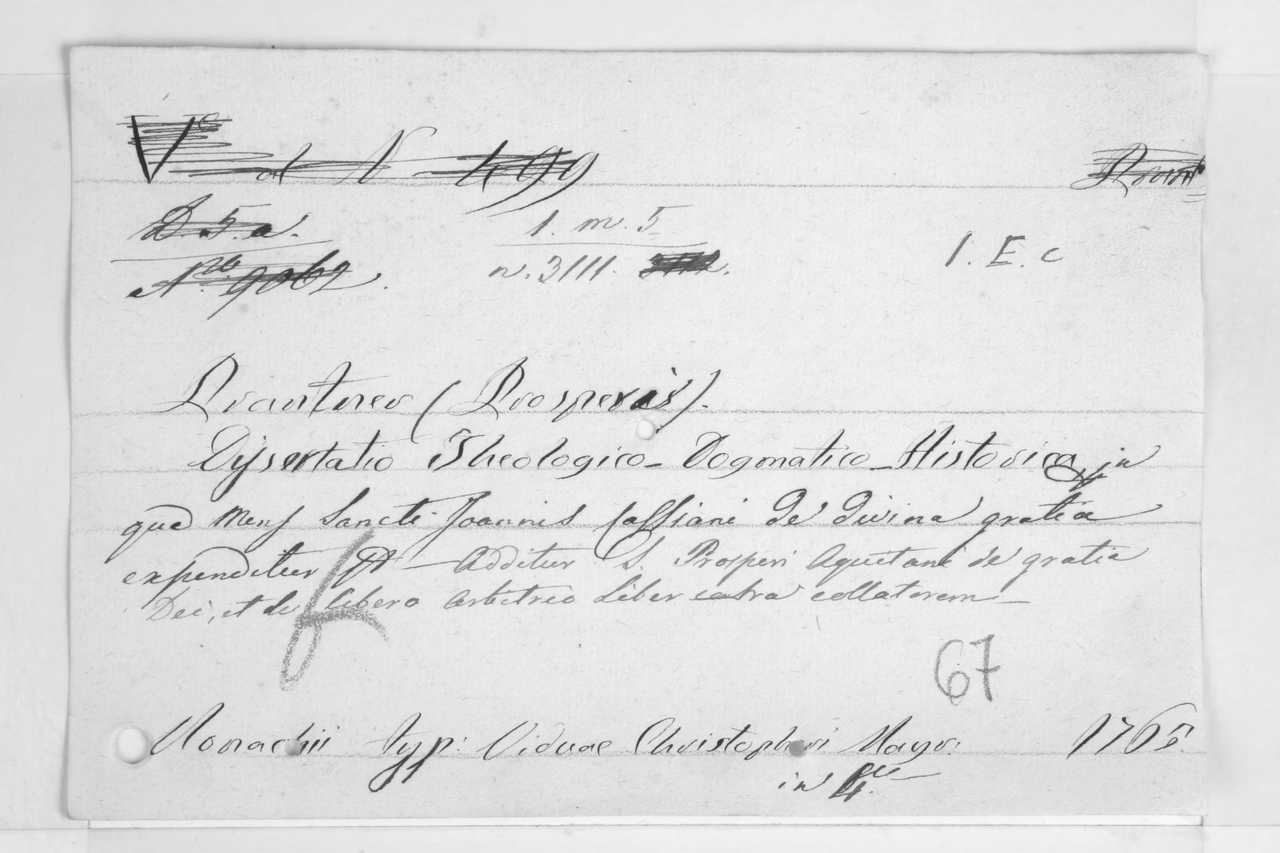 V.e al N 499
D. 5. a. 1. m. 5
N.ro 9062. n. 3111. 1. E. c
(Prosperis).
Dissertatio Theologico-Dogmatico-Historica, in
qua Mens Sancti Joannis Cassiani de divina gratia
expenditur Additur S. Prosperi Aquitani de gratia
Dei, et de Libero Arbitrio Liber contra collatorem
67
Monachii typ: Viduae Christophori Mayr: 1765.
in 4.to